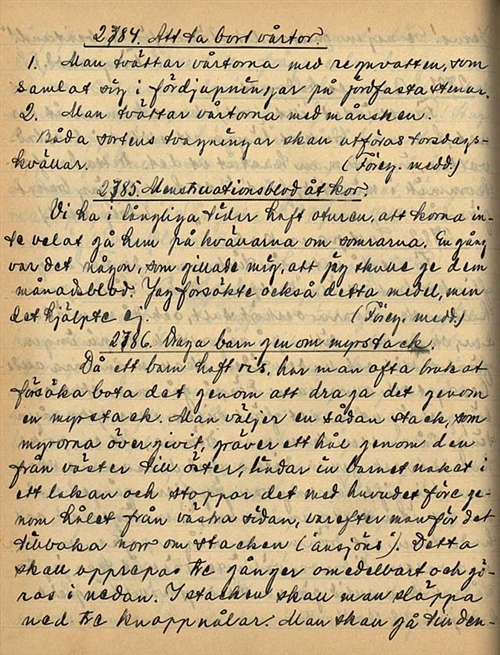 2784. Att ta bort vårtor.
1. Man tvättar vårtorna med regnvatten, som
samlat sig i fördjupningar på jordfasta stenar.
2. Man tvättar vårtorna med månsken.
Båda sortens tvagningar skall utföras torsdags-
kvällar. (Föreg. medd.)
2785. Menstruationsblod åt kor.
Vi ha i långliga tider haft oturen, att korna in-
te velat gå hem på kvällarna om somrarna. En gång
var det någon, som gillade mig, att jag skulle ge dem
månadsblod. Jag försökte också detta medel, men
det hjälpte ej. (Föreg. medd.)
2786. Draga barn genom myrstack.
Då ett barn haft ris, har man ofta brukat
försöka bota det genom att draga det genom
en myrstack. Man väljer en sådan stack, som
myrorna övergivit, gräver ett hål genom den
från väster till öster, lindar in barnet naket i
ett lakan och stoppar det med huvudet före ge-
nom hålet från västra sidan, varefter man för det
tillbaka norr om stacken (ansjöns). Detta
skall upprepas tre gånger omedelbart och gö-
ras i nedan. I stacken skall man släppa
ned tre knappnålar. Man skall gå till den-